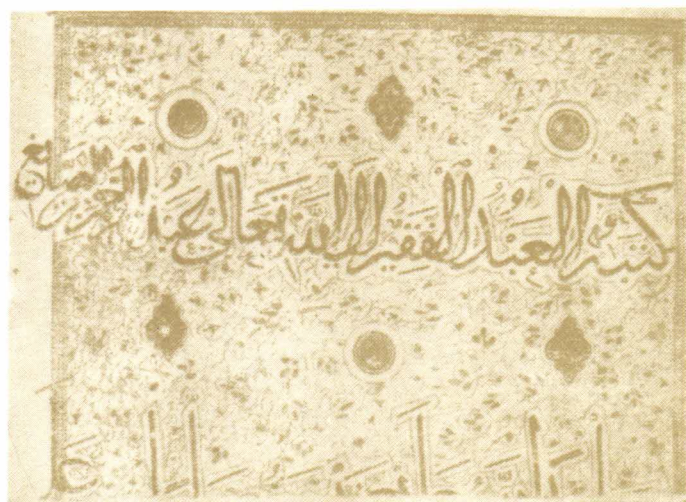 كتبه العبد الفقير الى الله تعالى عبد الرحمن الصايغ